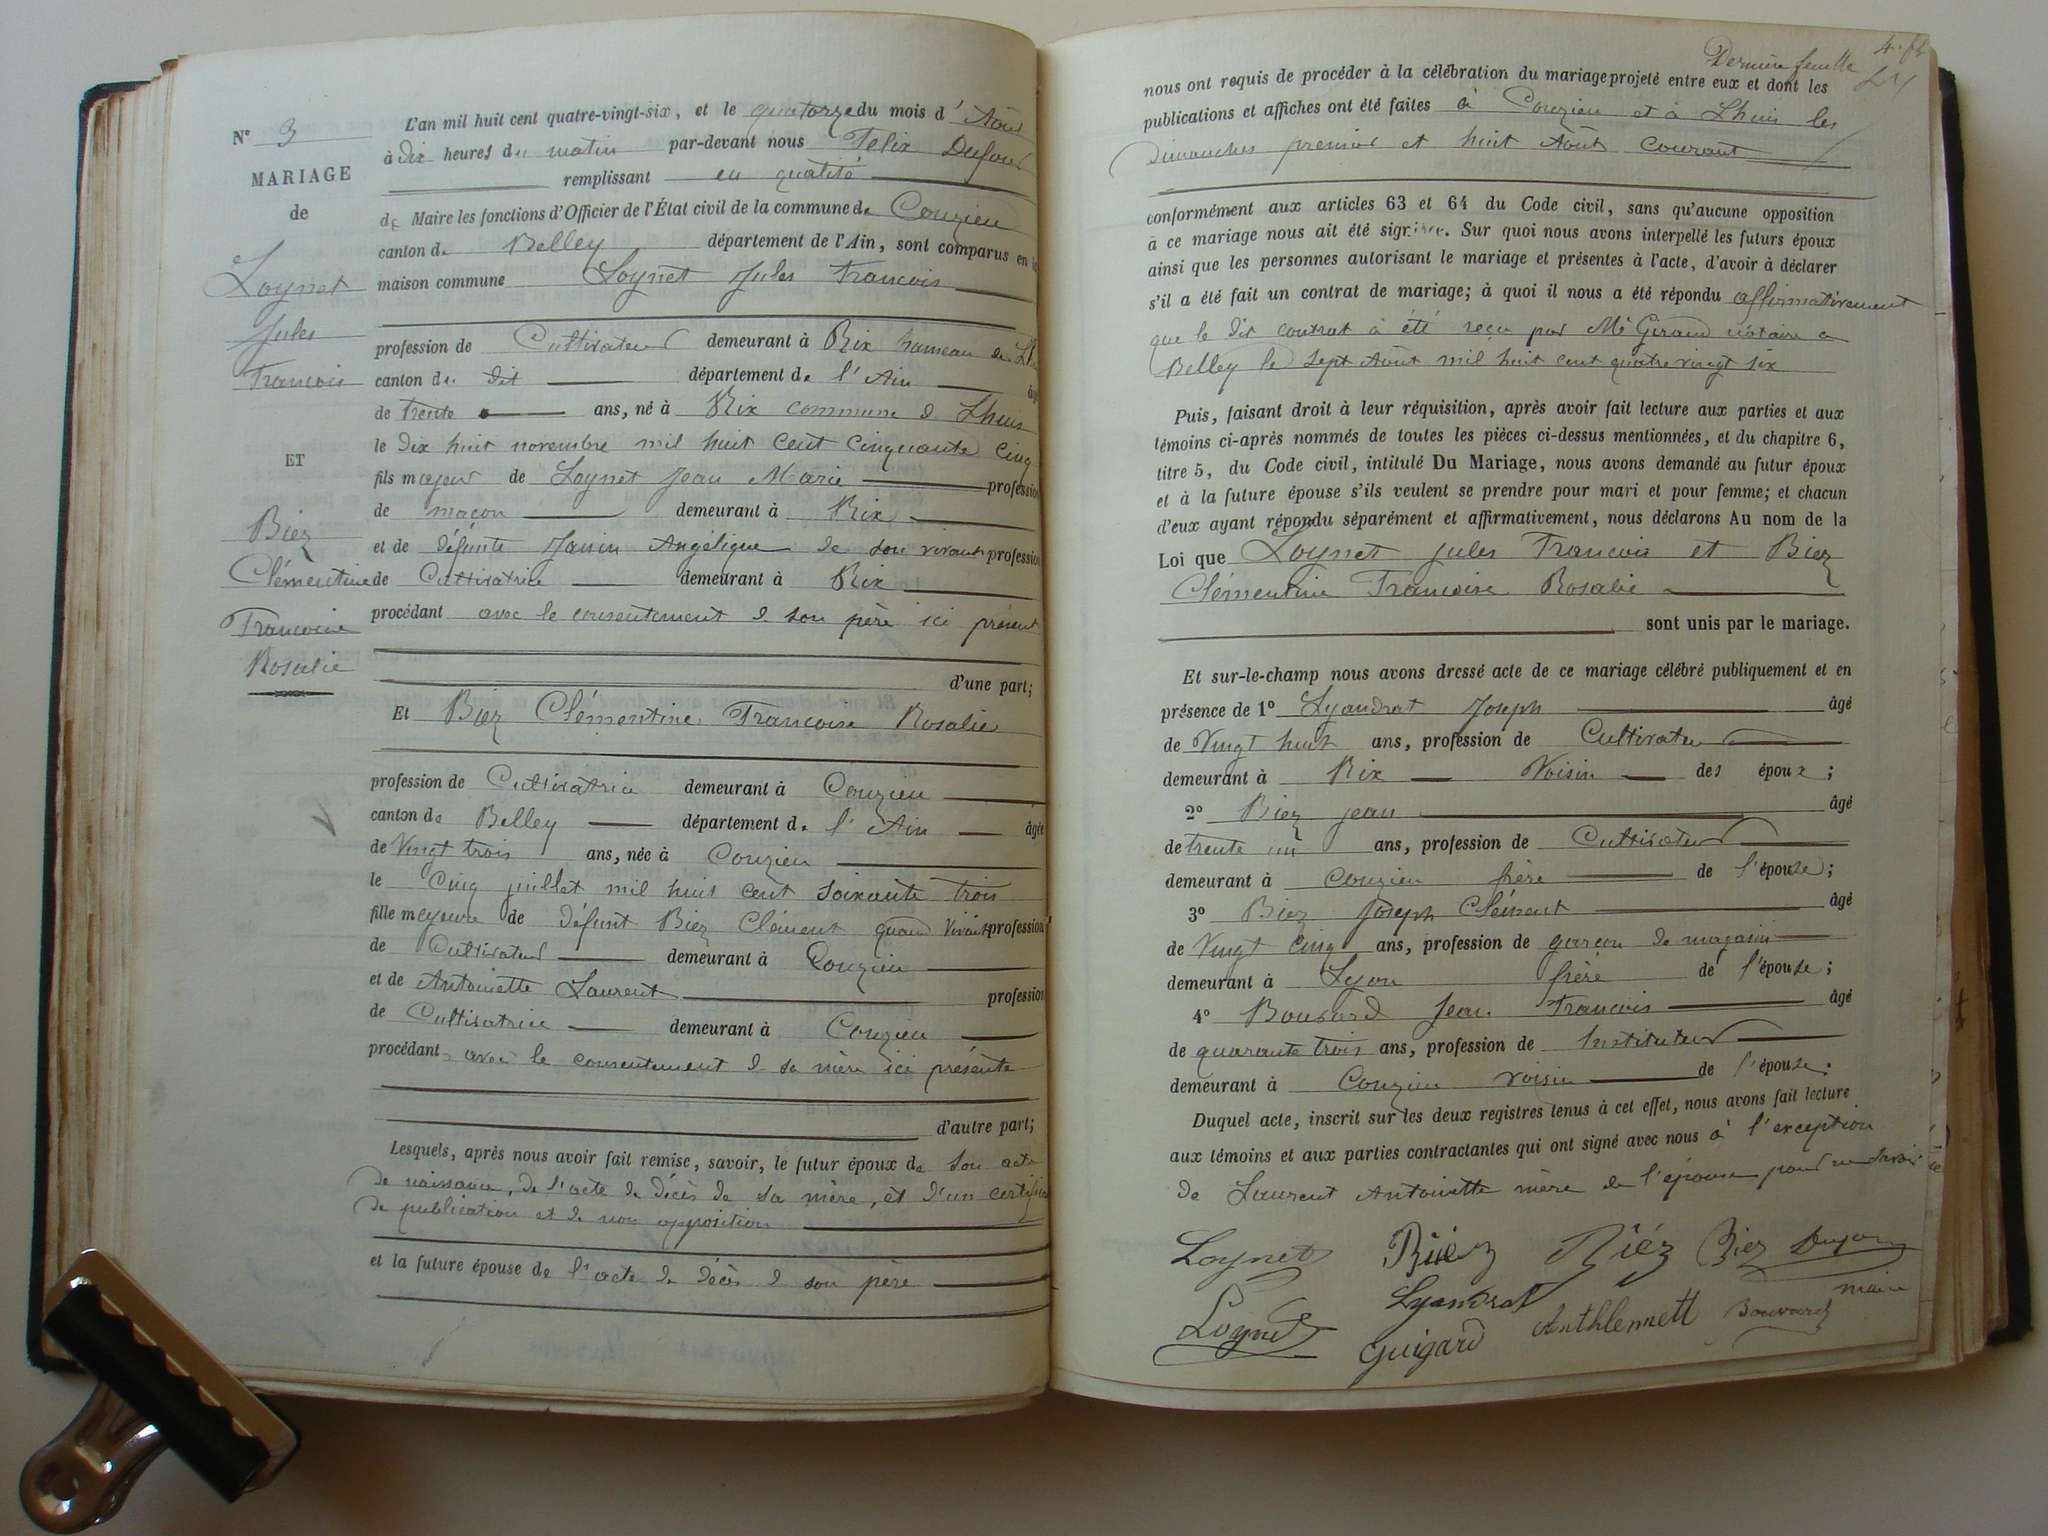 N° 3
MARIAGE
de
Loynet
Jules
Francois
ET
Biez
Clémentine
Francoise
Rosalie
L'an mil huit cent quatre-vingt-six, et le quatorze du mois d'Août
à dix heures du matin par-devant nous Felix Dufour
remplissant en qualité
de Maire les fonctions d'Officier de l'État civil de la commune de Conzieu
canton de Belley département de l'Ain, sont comparus en la
maison commune Loynet Jules Francois
profession de Cultivateur demeurant à Rix hameau de
canton de dit département de l'Ain
de trente ans, né à Rix commune de Lhuis
le dix huit novembre mil huit cent cinquante cinq
fils majeur de Loynet Jean Marie profession
de macon demeurant à Rix
et de défunte Janin Angélique de son vivant profession
de Cultivatrice demeurant à Rix
procédant avec le consentement de son père ici présent
d'une part;
Et Biez Clémentine Francoise Rosalie
profession de Cultivatrice demeurant à Conzieu
canton de Belley département de l'Ain âgée
de Vingt trois ans, née à Conzieu
le cinq juillet mil huit cent soixante trois
fille majeure de défunt Biez Clément quand vivant profession
de Cultivateur demeurant à Conzieu
et de Antoinette Laurent profession
de Cultivatrice demeurant à Conzieu
procédant avec le consentement de sa mère ici présente
d'autre part;
Lesquels, après nous avoir fait remise, savoir, le futur époux de son acte
de naissance, de l'acte de décès de sa mère, et d'un certificat
de publication et de non opposition
et la future épouse de l'acte de décès de son père
Dernière feuille
nous ont requis de procéder à la célébration du mariage projeté entre eux et dont les
publications et affiches ont été faites à Conzieu et à Lhuis les
dimanches premier et huit Août courant
conformément aux articles 63 et 64 du Code civil, sans qu'aucune opposition
à ce mariage nous ait été signifiée. Sur quoi nous avons interpellé les futurs époux
ainsi que les personnes autorisant le mariage et présentes à l'acte, d'avoir à déclarer
s'il a été fait un contrat de mariage; à quoi il nous a été répondu affirmativement
que le dit contrat à été reçu par Me Giraud notaire a
Belley le sept Août mil huit cent quatre vingt six
Puis, faisant droit à leur réquisition, après avoir fait lecture aux parties et aux
témoins ci-après nommés de toutes les pièces ci-dessus mentionnées, et du chapitre 6,
titre 5, du Code civil, intitulé Du Mariage, nous avons demandé au futur époux
et à la future épouse s'ils veulent se prendre pour mari et pour femme; et chacun
d'eux ayant répondu séparément et affirmativement, nous déclarons Au nom de la
Loi que Loynet Jules Francois et Biez
Clémentine Francoise Rosalie
sont unis par le mariage.
Et sur-le-champ nous avons dressé acte de ce mariage célébré publiquement et en
présence de 1° Lyandrat Joseph âgé
de Vingt huit ans, profession de Cultivateur
demeurant à Rix Voisin des époux;
2° Biez jean âgé
de trente un ans, profession de Cultivateur
demeurant à Conzieu frère de l'épouse;
3° Biez Joseph Clément âgé
de Vingt cinq ans, profession de garcon de magasin
demeurant à Lyon frère de l'épouse;
4° Bouvard Jean Francois âgé
de quarante trois ans, profession de Instituteur
demeurant à Conzieu voisin de l'épouse.
Duquel acte, inscrit sur les deux registres tenus à cet effet, nous avons fait lecture
aux témoins et aux parties contractantes qui ont signé avec nous à l'exception
de Laurent Antoinette mère de l'épouse pour ne savoir
Loynet Biez Biéz Biez Dufour
Lyandrat maire
Loynet Guigard Anthlemett Bouvard